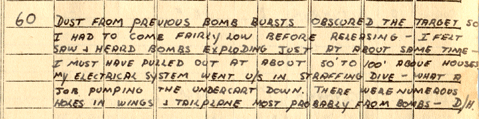 60 DUST FROM PREVIOUS BOMB BURSTS OBSCURED THE TARGET SO
I HAD TO COME FAIRLY LOW BEFORE RELEASING - I FELT
SAW & HEARD BOMBS EXPLODING JUST AT ABOUT SAME TIME -
I MUST HAVE PULLED OUT AT ABOUT 50' TO 100' ABOVE HOUSES
MY ELECTRICAL SYSTEM WENT U/S IN STRAFFING DIVE - WHAT A
JOB PUMPING THE UNDERCART DOWN. THERE WERE NUMEROUS
HOLES IN WINGS & TAILPLANE MOST PROBABLY FROM BOMBS - D/H.